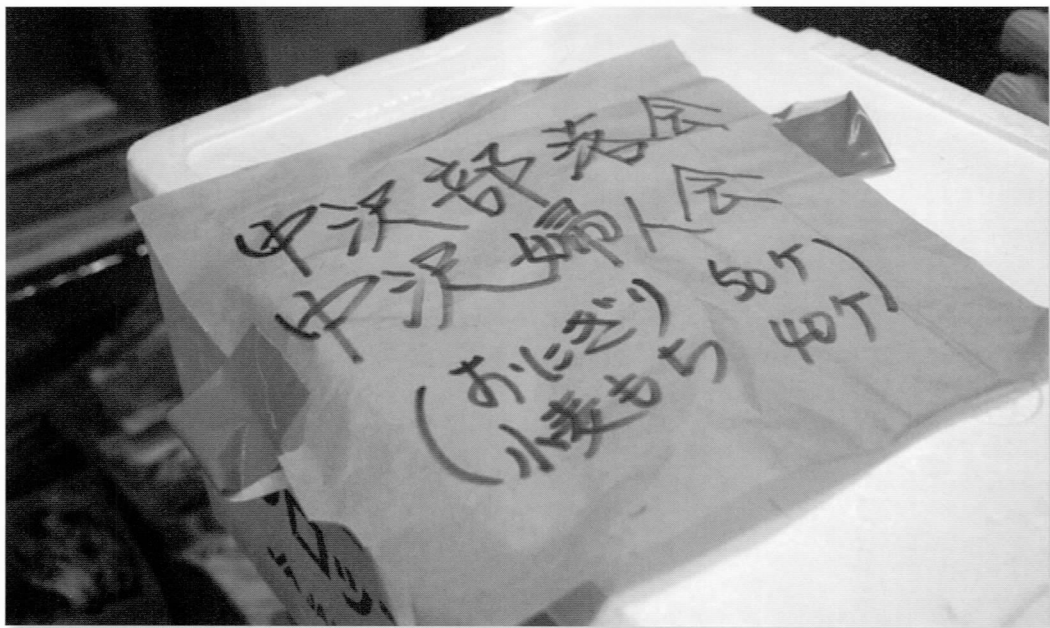 中沢部落会
中沢婦人会
(おにぎり 50ケ
小麦もち 40ケ)